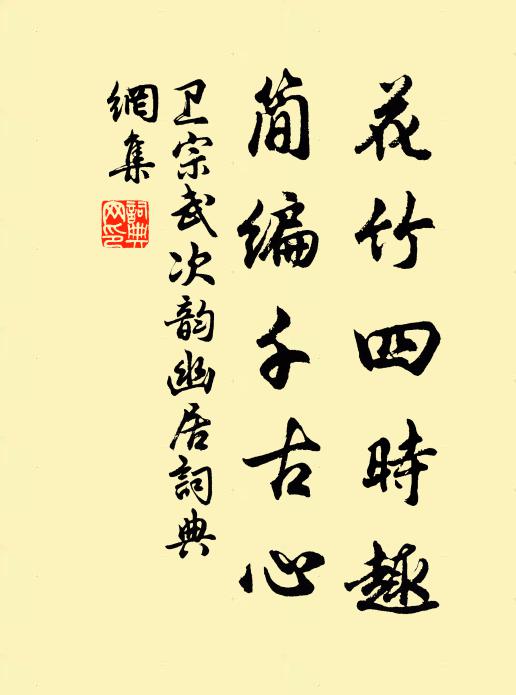 花竹四時趣
简编千古心
卫宗武次韵幽居詞典
網集
詞典
网印